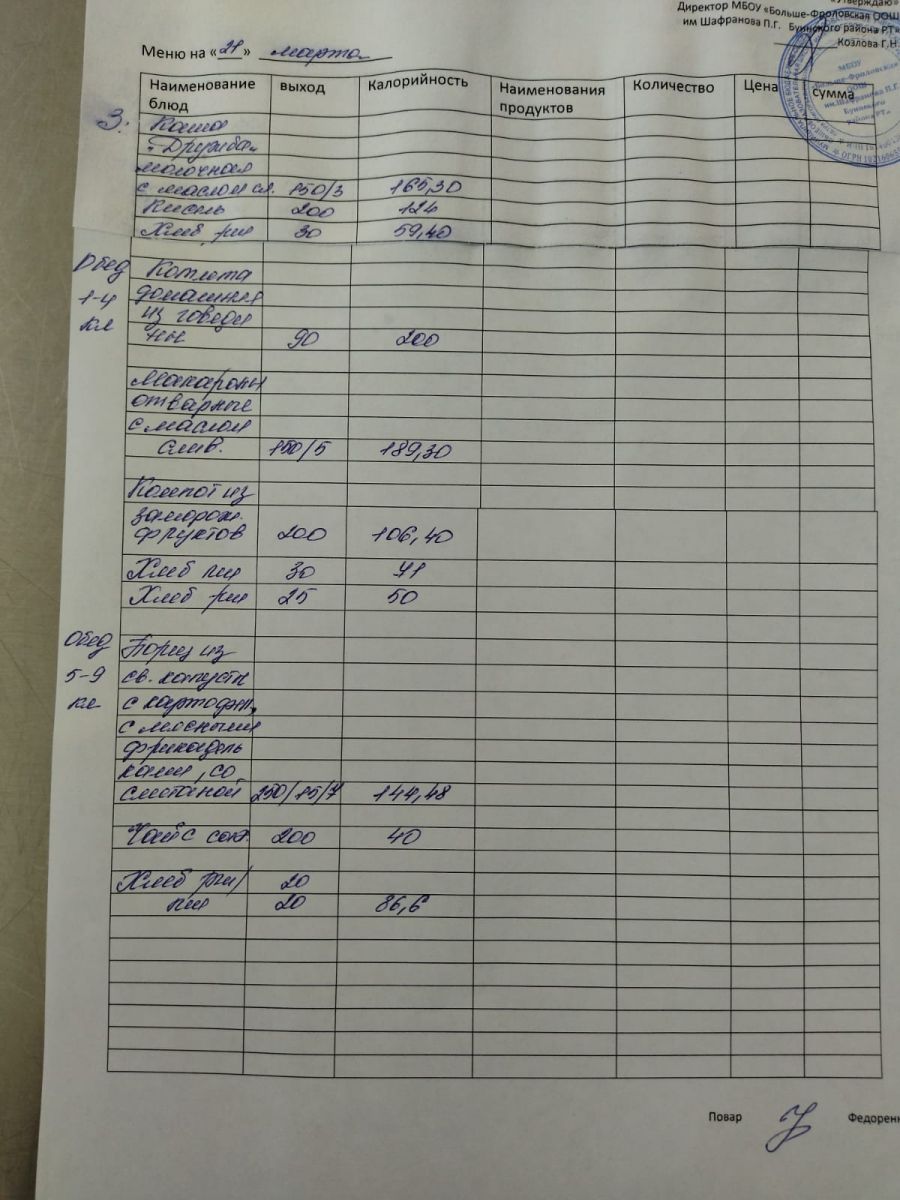 «Утверждаю»
Директор МБОУ «Больше-Фроловская ООШ
им Шафранова П.Г. Буинского района РТ»
Козлова Г.Н.
Меню на «21» марта
Наименование блюд выход Калорийность Наименования продуктов Количество Цена сумма
З.
Каша
"Дружба"
молочная
с маслом сл. 150/3 165,30
Кисель 200 124
Хлеб рж 30 59,40
Обед
1-4
кл
Котлета
домашняя
из говяди
ны 90 200
Макароны
отварные
с маслом
слив. 150/5 189,30
Компот из
заморож.
фруктов 200 106,40
Хлеб пш 30 71
Хлеб рж 25 50
Обед
5-9
кл
Борщ из
св. капусты
с картоф.
с мясными
фрикадель
ками, со
сметаной 250/15/7 144,48
Чай с сах. 200 40
Хлеб рж/ 20
пш 20 86,6
Повар Федорен
МБОУ
«Больше-Фроловская
ООШ
им.Шафранова П.Г.
Буинского
района РТ»